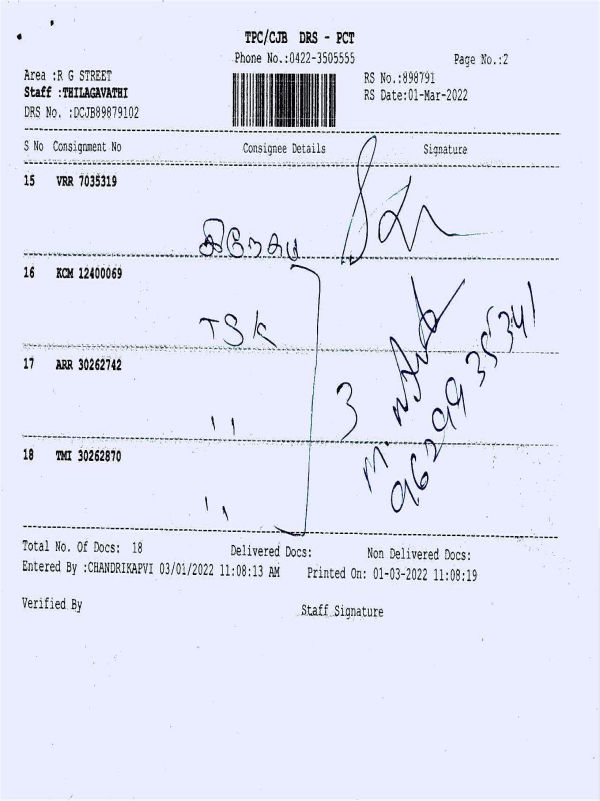 TPC/CJB DRS - PCT
Phone No.:0422-3505555
Page No.:2
Area :R G STREET
RS No.:898791
Staff :THILAGAVATHI
RS Date:01-Mar-2022
DRS No. :DCJB89879102
S No Consignment No Consignee Details Signature
15 VRR 7035319
16 KCM 12400069
TSK
17 ARR 30262742
,, 3
18 TMI 30262870
,,
M.
9629935341
Total No. Of Docs: 18 Delivered Docs: Non Delivered Docs:
Entered By :CHANDRIKAPVI 03/01/2022 11:08:13 AM Printed On: 01-03-2022 11:08:19
Verified By Staff Signature